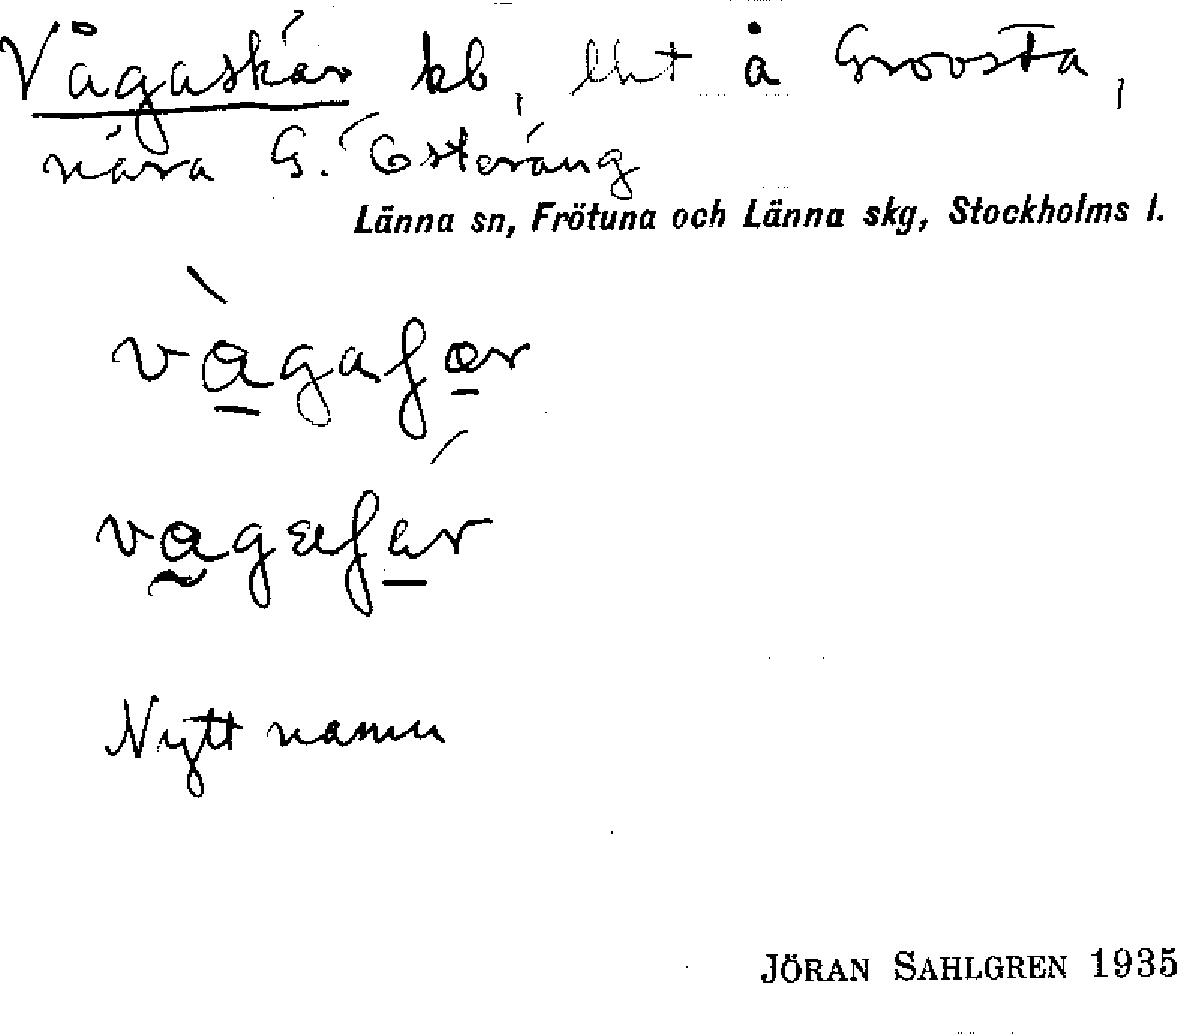 Vågaskär kb, lht å Grovsta,
nära G. Österäng
Länna sn, Frötuna och Länna skg, Stockholms l.
Nytt namn
JÖRAN SAHLGREN 1935